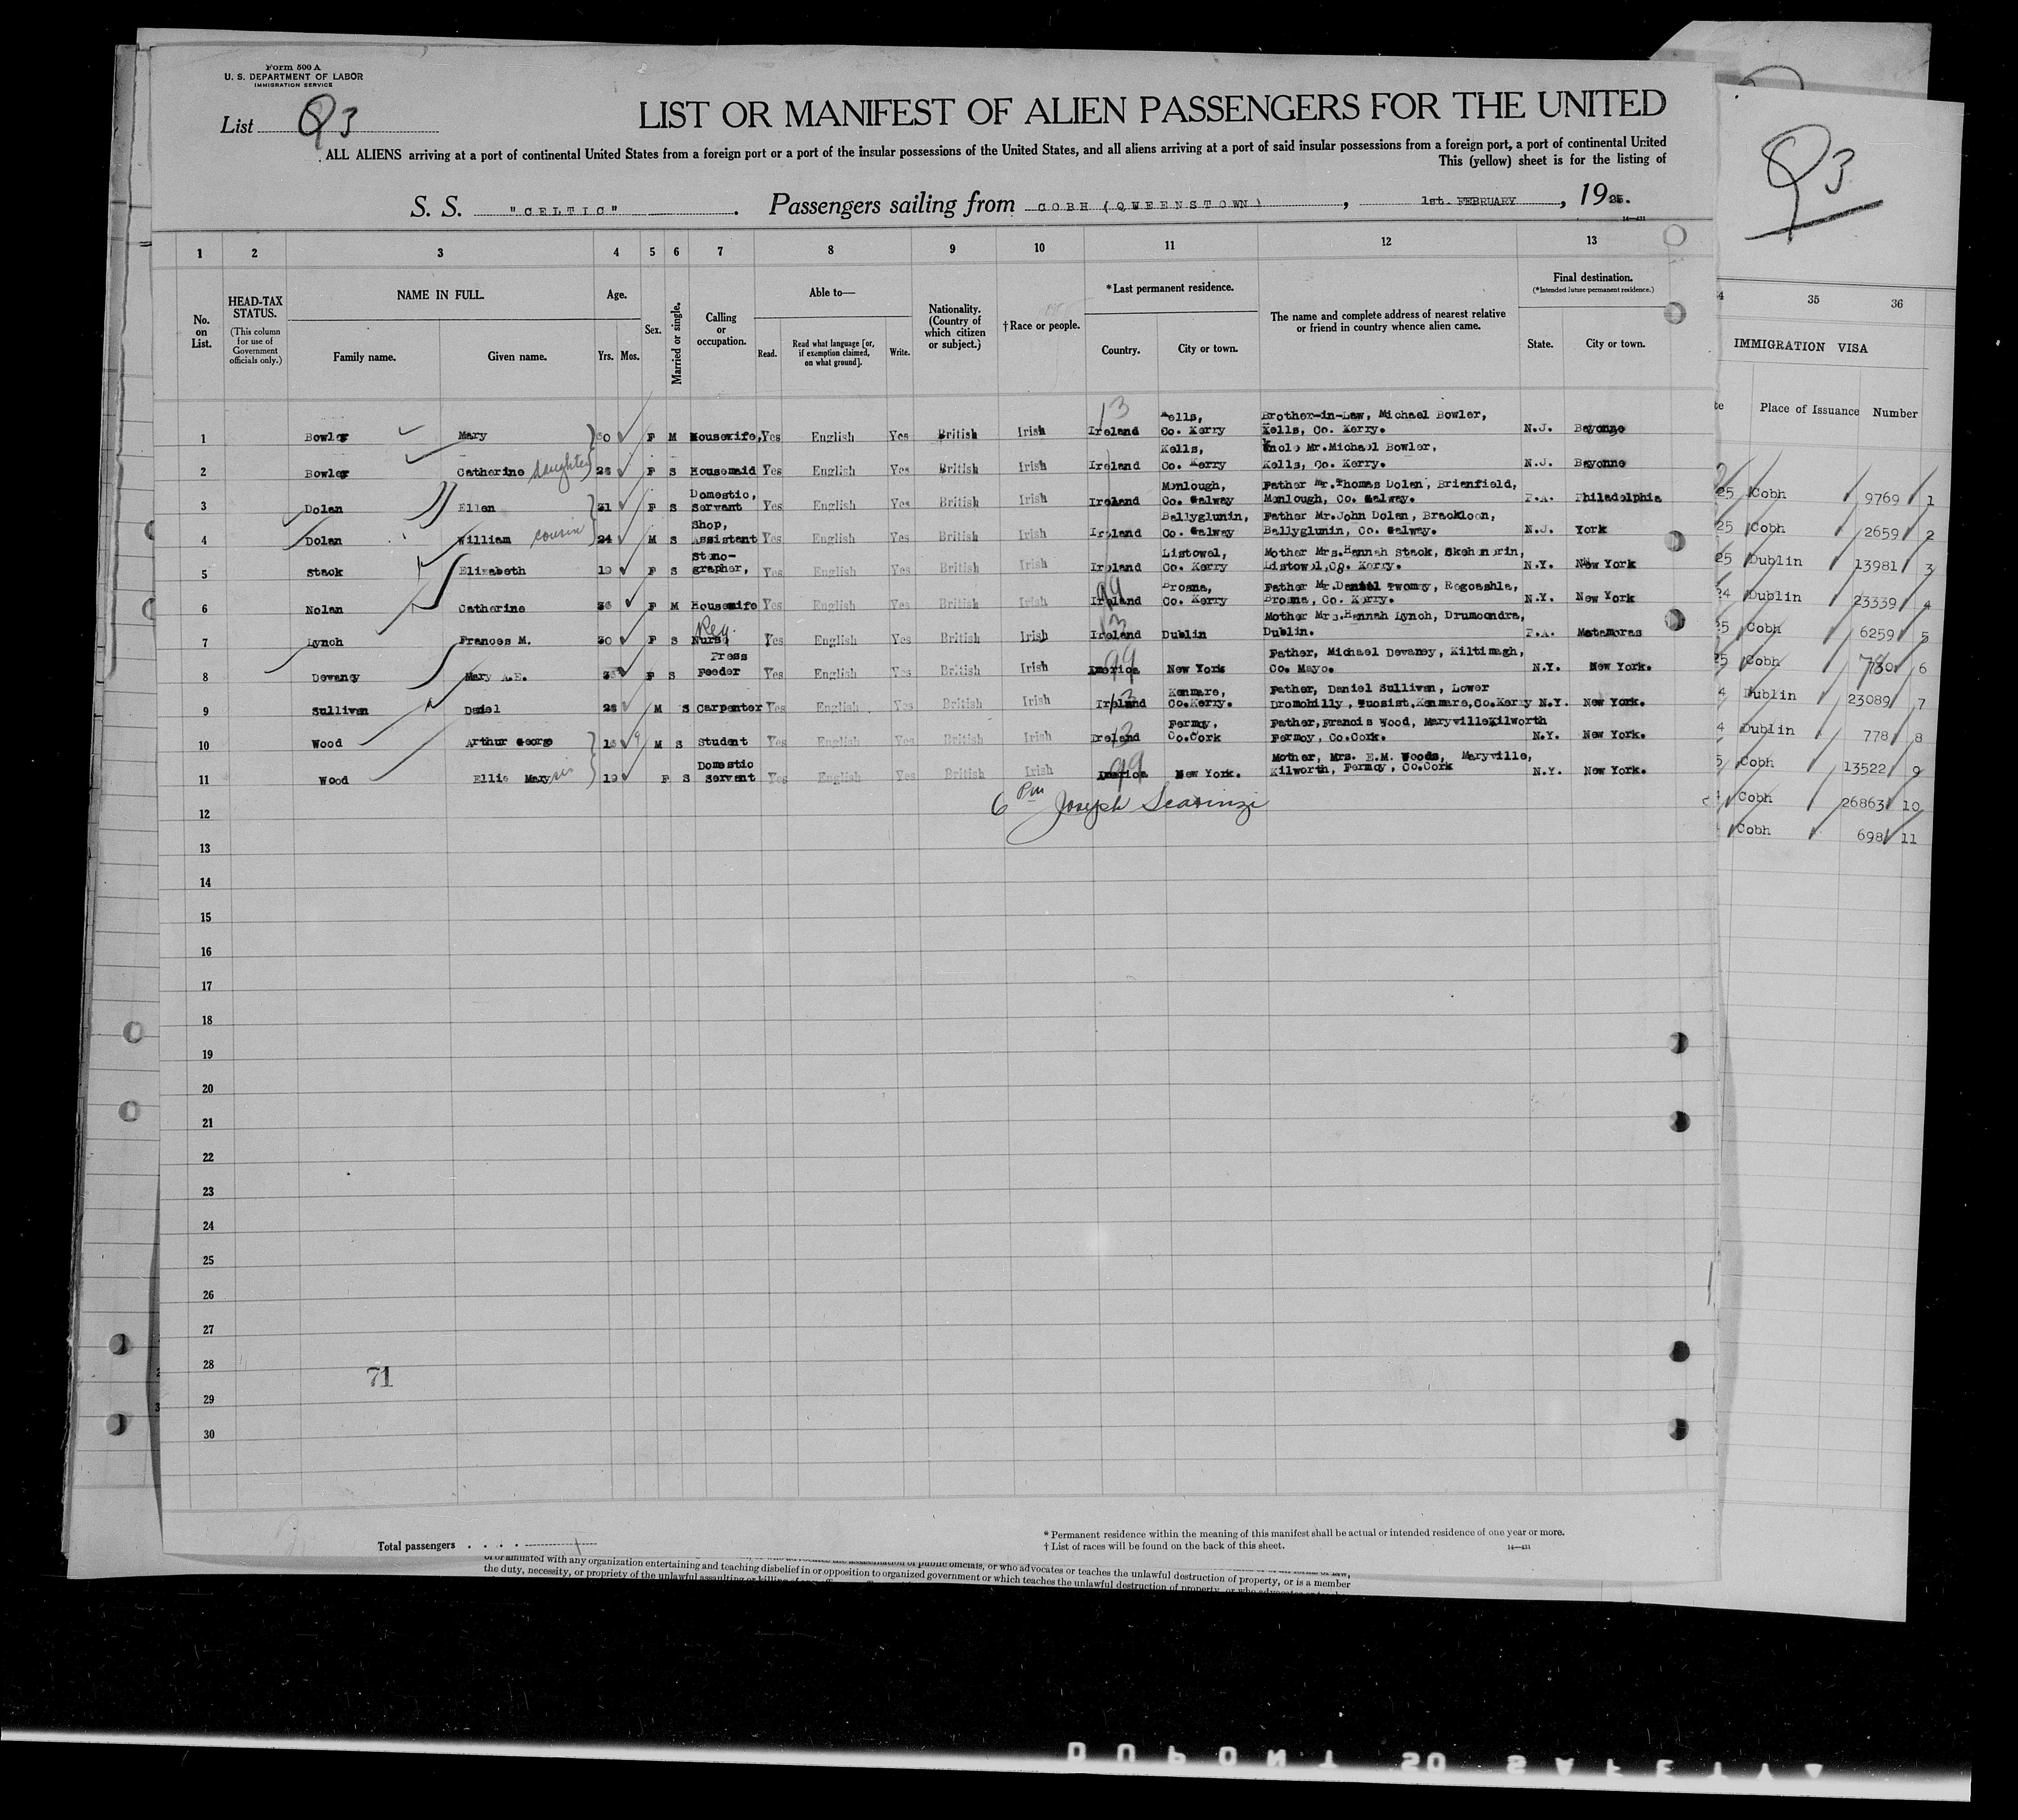 Form 500 A
U. S. DEPARTMENT OF LABOR
IMMIGRATION SERVICE
List Q3
LIST OR MANIFEST OF ALIEN PASSENGERS FOR THE UNITED
ALL ALIENS arriving at a port of continental United States from a foreign port or a port of the insular possessions of the United States, and all aliens arriving at a port of said insular possessions from a foreign port, a port of continental United
This (yellow) sheet is for the listing of
S. S. "CELTIC". Passengers sailing from COBH (QUEENSTOWN), 1st. FEBRUARY, 1925.
14-431
Q3
1 2 3 4 5 6 7 8 9 10 11 12 13
35 36
No. on List.
HEAD-TAX STATUS.
(This column for use of Government officials only.)
NAME IN FULL.
Family name. Given name.
Age.
Yrs. Mos.
Sex.
Married or single.
Calling or occupation.
Able to—
Read. Read what language [or, if exemption claimed, on what ground]. Write.
Nationality. (Country of which citizen or subject.)
†Race or people.
*Last permanent residence.
Country. City or town.
The name and complete address of nearest relative or friend in country whence alien came.
Final destination.
(*Intended future permanent residence.)
State. City or town.
IMMIGRATION VISA
Place of Issuance Number
1 Bowler Mary F M Housewife, Yes English Yes British Irish 13 Ireland Kells, Co. Kerry Brother-in-Law, Michael Bowler, Kells, Co. Kerry. N.J. Bayonne
2 Bowler Catherine daughter F S Housemaid Yes English Yes British Irish Ireland Kells, Co. Kerry Uncle Mr.Michael Bowler, Kells, Co. Kerry. N.J. Bayonne
3 Dolan Ellen 21 F S Domestic, Servant Yes English Yes British Irish Ireland Monlough, Co. Galway Father Mr.Thomas Dolan, Brienfield, Monlough, Co. Galway. P.A. Philadelphia
4 Dolan William cousin 24 M S Shop, Assistant Yes English Yes British Irish Ireland Ballyglunin, Co. Galway Father Mr.John Dolan, Brackloon, Ballyglunin, Co. Galway. N.J. York
5 Stack Elizabeth 19 F S Steno-grapher, Yes English Yes British Irish Ireland Listowel, Co. Kerry Mother Mrs.Hannah Stack, Listowel,Co. Kerry. N.Y. New York
6 Nolan Catherine F M Housewife Yes English Yes British Irish 99 Ireland Brosna, Co. Kerry Father Mr.Daniel Twomey, Brosna, Co. Kerry. N.Y. New York
7 Lynch Frances M. 30 F S Reg. Nurse Yes English Yes British Irish 13 Ireland Dublin Mother Mrs.Hannah Lynch, Drumcondra, Dublin. P.A. Matamoras
8 Devaney Mary A.E. F S Press Feeder Yes English Yes British Irish 99 America New York Father, Michael Devaney, Kiltimagh, Co. Mayo. N.Y. New York.
9 Sullivan Daniel M S Carpenter Yes English Yes British Irish 13 Ireland Kenmare, Co.Kerry. Father, Daniel Sullivan, Lower Dromohilly, Tuosist,Kenmare,Co.Kerry N.Y. New York.
10 Wood Arthur George M S Student Yes English Yes British Irish 13 Ireland Fermoy, Co.Cork Father,Francis Wood, MaryvilleKilworth Fermoy, Co.Cork. N.Y. New York.
11 Wood Ellie Mary sis 19 F S Domestic Servant Yes English Yes British Irish 99 America New York. Mother, Mrs. E.M. Woods, Maryville, Kilworth, Fermoy, Co.Cork N.Y. New York.
6 Pm Joseph Scarinzi
12
13
14
15
16
17
18
19
20
21
22
23
24
25
26
27
28
29
30
71
25 Cobh 9769 1
25 Cobh 2659 2
25 Dublin 13981 3
24 Dublin 23339 4
25 Cobh 6259 5
25 Cobh 6
4 Dublin 23089 7
4 Dublin 778 8
5 Cobh 13522 9
Cobh 26863 10
Cobh 698 11
Total passengers . . . .
*Permanent residence within the meaning of this manifest shall be actual or intended residence of one year or more.
†List of races will be found on the back of this sheet.
14-431
or affiliated with any organization entertaining and teaching disbelief in or opposition to organized government or which teaches the unlawful destruction of property, or is a member
the duty, necessity, or propriety of the unlawful assaulting or killing
DUPONT SAFETY